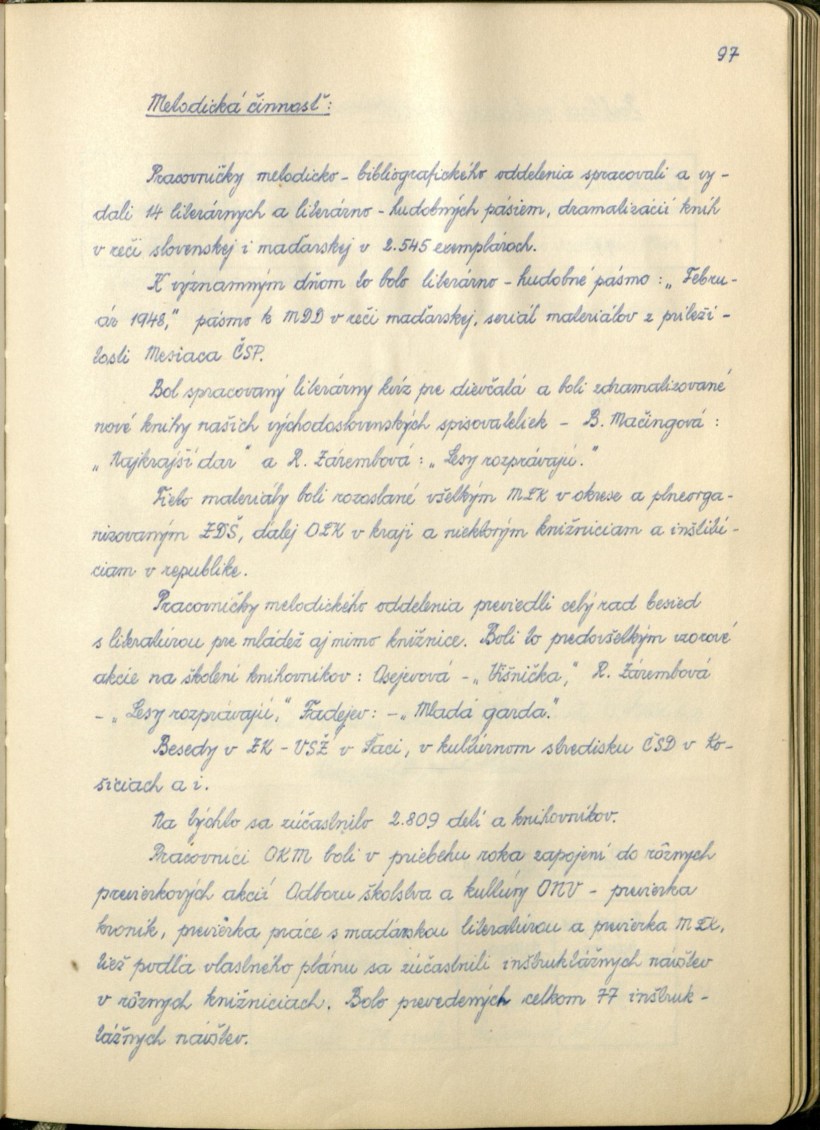 97
Metodická činnosť:
Pracovníčky metodicko - bibliografického oddelenia spracovali a vy-
dali 14 literárnych a literárno - hudobných pásiem, dramatizácií kníh
v reči slovenskej i maďarskej v 2.545 exemplároch.
K významným dňom to bolo literárno - hudobné pásmo : „ Febru-
ár 1948,“ pásmo k MDD v reči maďarskej, seriál materiálov z príleži -
tosti Mesiaca ČSP.
Bol spracovaný literárny kvíz pre dievčatá a boli zdramatizované
nové knihy našich východoslovenských spisovateliek - B. Mačingová :
„ Najkrajší dar “ a R. Zárembová : „ Lesy rozprávajú.“
Tieto materiály boli rozoslané všetkým MĽK v okrese a plneorga-
nizovaným ZDŠ, ďalej OĽK v kraji a niektorým knižniciam a inštitú-
ciam v republike.
Pracovníčky metodického oddelenia previedli celý rad besied
s literatúrou pre mládež aj mimo knižnice. Boli to predovšetkým vzorové
akcie na školení knihovníkov : Osejevová - „ Višnička,“ R. Zárembová
- „ Lesy rozprávajú,“ Fadejev : - „ Mladá garda.“
Besedy v ZK - VSŽ v Šaci, v kultúrnom stredisku ČSD v Ko-
šiciach a i.
Na týchto sa zúčastnilo 2.809 detí a knihovníkov.
Pracovníci OKM boli v priebehu roka zapojení do rôznych
previerkových akcií Odboru školstva a kultúry ONV - previerka
kroník, previerka práce s maďarskou literatúrou a previerka MĽK,
tiež podľa vlastného plánu sa zúčastnili inštruktážnych návštev
v rôznych knižniciach. Bolo prevedených celkom 77 inštruk -
tážnych návštev.